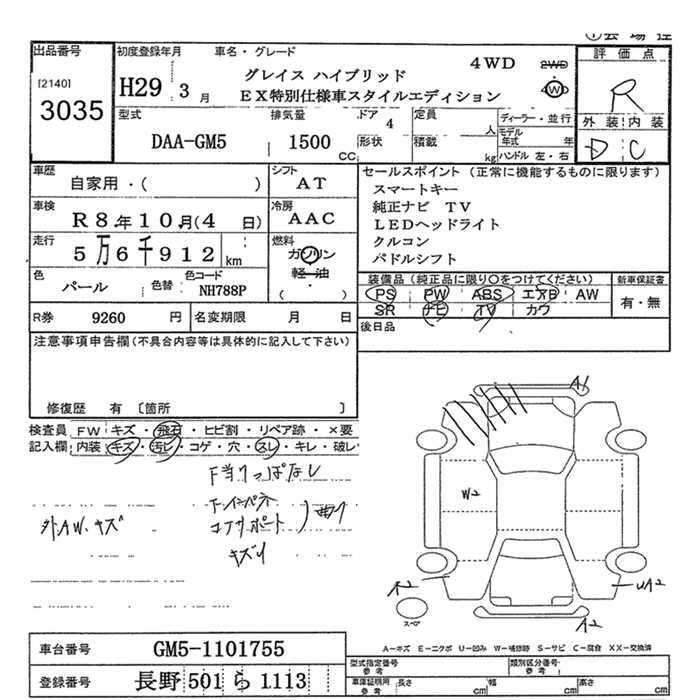 出品番号
[2140]
3035
初度登録年月
H29年3月
車名・グレード
グレイス ハイブリッド
EX特別仕様車スタイルエディション
4WD
2WD
4WD
評価点
R
外装 内装
D C
型式
DAA-GM5
排気量
1500 CC
ドア 4
形状
定員 人
積載 kg
ディーラー・並行
モデル年式 年
ハンドル 左・右
車歴
自家用・( )
シフト
AT
車検
R8.年10.月(4 日)
冷房
AAC
走行
5万6千912 km
燃料
ガソリン
軽油
( )
色
パール
色替
色コード
NH788P
R券 9260 円
名変期限 月 日
セールスポイント(正常に機能するものに限ります)
スマートキー
純正ナビ TV
LEDヘッドライト
クルコン
パドルシフト
装備品(純正品に限り○をつけてください)
PS PW ABS エアB AW
SR ナビ TV カワ
新車保証書
有・無
後日品
注意事項申告欄(不具合内容等は具体的に記入して下さい)
修復歴 有 〔箇所 〕
検査員 FW キズ・飛石・ヒビ割・リペア跡・×要
記入欄 内装 キズ・汚し・コゲ・穴・スレ・キレ・破レ
下当てっぱなし
コアサポート 曲り
キズ
外AW.キズ
A1
W2
A2
UA2
A2
スペア
A-キズ E-エクボ U-凹み W-補修跡 S-サビ C-腐食 XX-交換済
車台番号
GM5-1101755
登録番号
長野 501 ら 1113
型式指定番号
参考
類別区分番号
参考
車庫証明用
参考
長さ cm
幅 cm
高さ cm